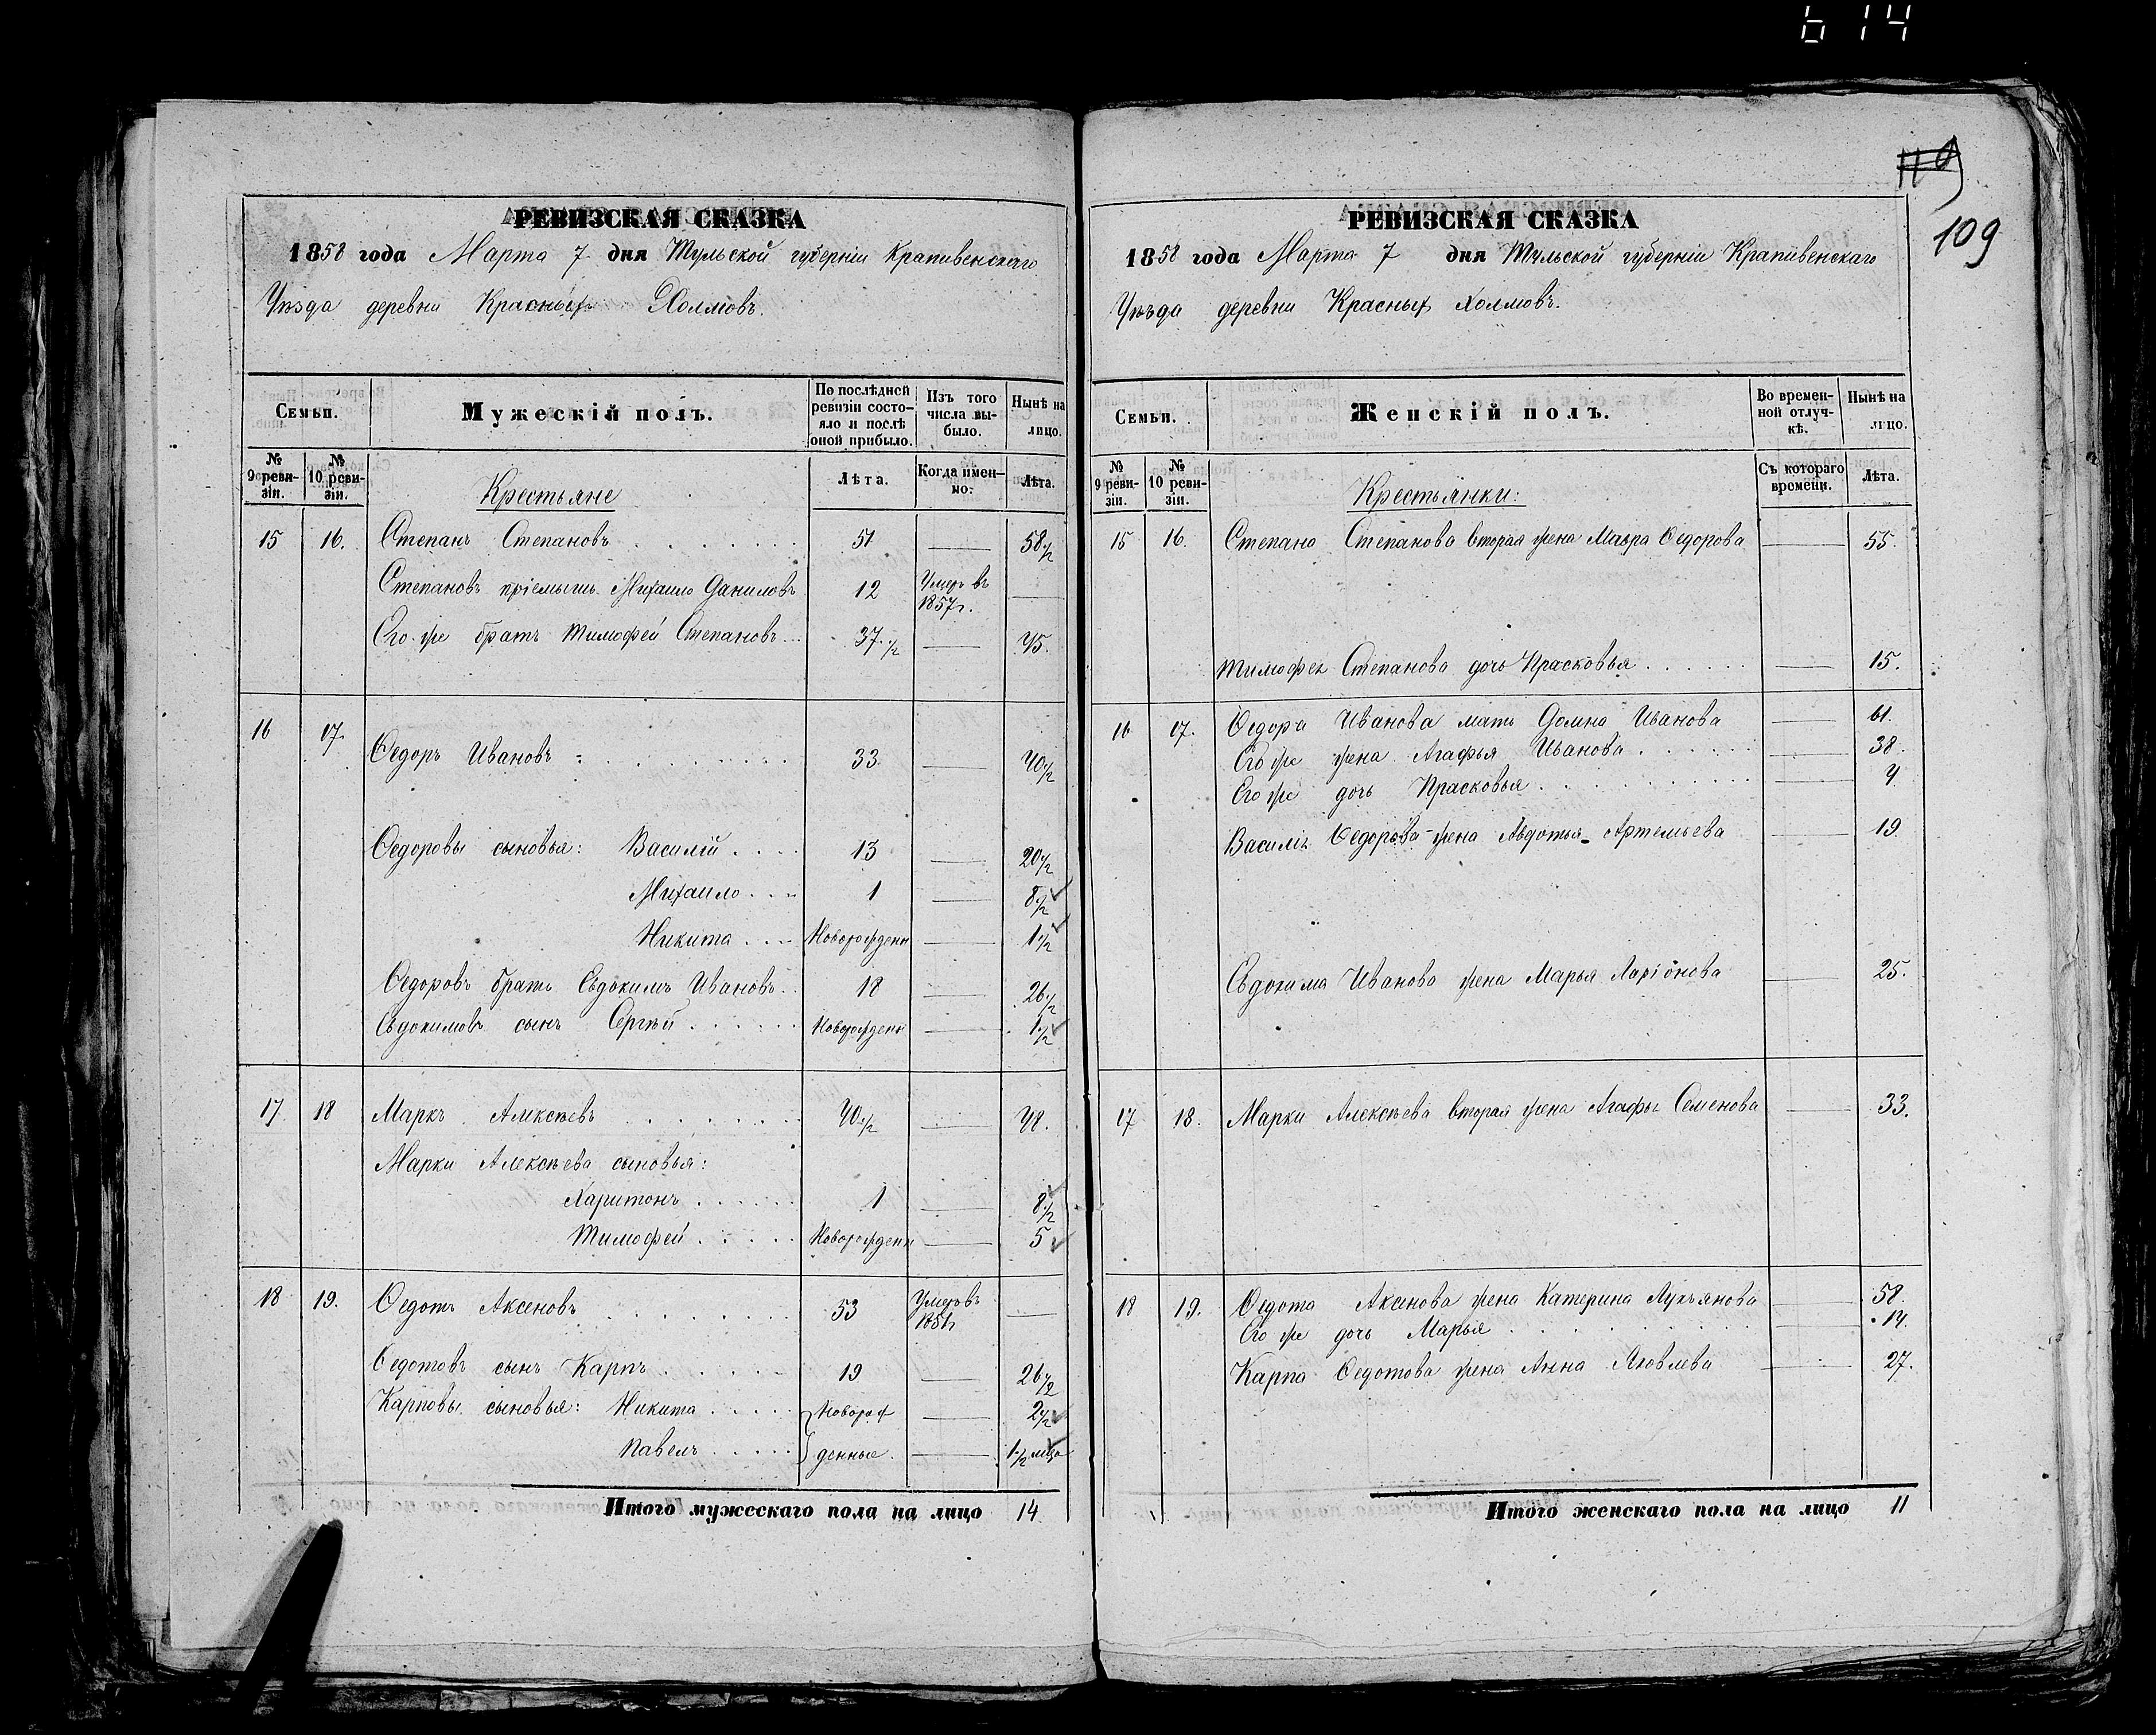 614
110
109
РЕВИЗСКАЯ СКАЗКА
1858 года Марта 7 дня Тульской губерніи Крапивенскаго
Уѣзда деревни Красныхъ Холмовъ.
Семьи.
Мужескій полъ.
По послѣдней ревизіи состояло и послѣ оной прибыло.
Изъ того числа выбыло.
Нынѣ на лицо.
№ 9 ревизіи.
№ 10 ревизіи.
Крестьяне
Лѣта.
Когда именно.
Лѣта.
15 16. Степанъ Степановъ 51 — 58 1/2
Степановъ пріемышъ Михаило Даниловъ 12 Умеръ въ 1857г. —
Его же братъ Тимофей Степановъ 37 1/2 — 45.
16 17. Ѳедоръ Ивановъ 33 — 40 1/2
Ѳедоровы сыновья: Василій 13 — 20 1/2
Михаило 1 — 8 1/2
Никита Новорожденн — 1 1/2
Ѳедоровъ братъ Евдокимъ Ивановъ 18 — 26 1/2
Евдокимовъ сынъ Сергѣй Новорожденн — 1 1/2
17 18 Маркъ Алексѣевъ 40 1/2 — 48.
Марки Алексѣева сыновья:
Харитонъ 1 — 8 1/2
Тимофей Новорожденн — 5
18 19. Ѳедотъ Аксеновъ 53 Умеръ въ 1851г —
Ѳедотовъ сынъ Карпъ 19 — 26 1/2
Карповы сыновья: Никита Новорож — 2 1/2
Павелъ денные. — 1 1/2 мѣся
Итого мужескаго пола на лицо 14
РЕВИЗСКАЯ СКАЗКА
1858 года Марта 7 дня Тульской губерніи Крапивенскаго
Уѣзда деревни Красныхъ Холмовъ.
Семьи.
Женскій полъ.
Во временной отлучкѣ.
Нынѣ на лицо.
№ 9 ревизіи.
№ 10 ревизіи.
Крестьянки:
Съ котораго времени.
Лѣта.
15 16. Степана Степанова вторая жена Мавра Ѳедорова — 55.
Тимофея Степанова дочь Прасковья — 15.
16 17. Ѳедора Иванова мать Домна Иванова — 61.
Его же жена Агафья Иванова — 38.
Его же дочь Прасковья — 4
Василія Ѳедорова жена Авдотья Артемьева — 19
Евдокима Иванова жена Марья Ларіонова — 25.
17 18. Марки Алексѣева вторая жена Агафья Семенова — 33.
18 19. Ѳедота Аксенова жена Катерина Лукьянова — 58.
Его же дочь Марья — 14.
Карпа Ѳедотова жена Анна Яковлева — 27.
Итого женскаго пола на лицо 11